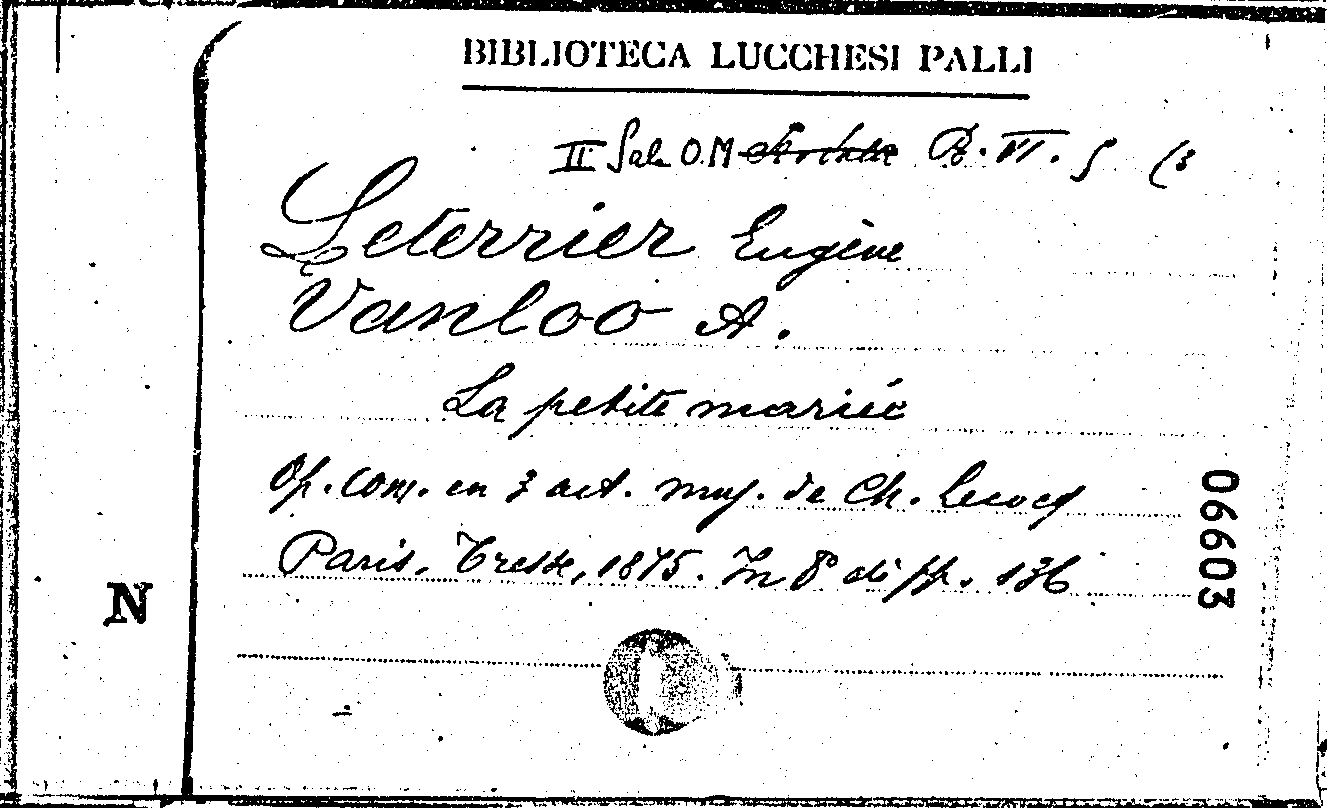 BIBLIOTECA LUCCHESI PALLI
II Sala O.M B. VI. 5 (3
Leterrier Eugène
Vanloo A.
La petite mariée
Op. com. en 3 act. mus. de Ch. Lecocq
Paris, Tresse, 1875. In 8° di pp. 136
06603
N